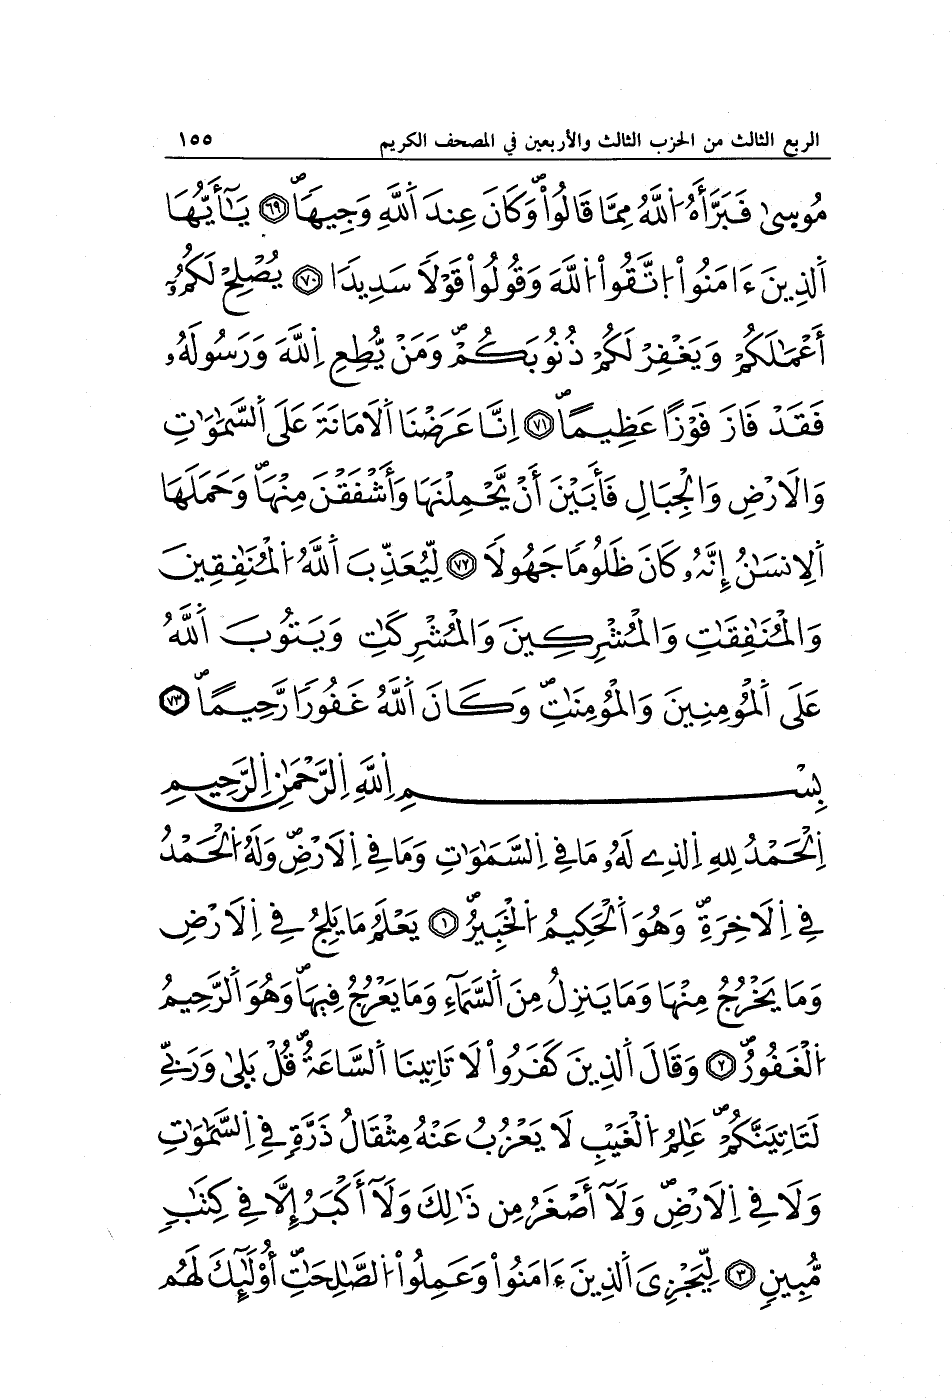 الربع الثالث من الحزب الثالث والأربعين في المصحف الكريم ١٥٥
مُوسِىٰ فَبَرَّأَهُ اُ۬للَّهُ مِمَّا قَالُواْۖ وَكَانَ عِندَ اَ۬للَّهِ وَجِيهاٗۖ ٦٩ يَٰٓأَيُّهَا
اَ۬لذِينَ ءَامَنُواْ اُ۪تَّقُواْ اُ۬للَّهَ وَقُولُواْ قَوْلاٗ سَدِيداٗ ٧٠ يُصْلِحْ لَكُمُۥٓ
أَعْمَٰلَكُمْ وَيَغْفِرْ لَكُمْ ذُنُوبَكُمْۖ وَمَنْ يُّطِعِ اِ۬للَّهَ وَرَسُولَهُۥ
فَقَدْ فَازَ فَوْزاً عَظِيماًۖ ٧١ اِنَّا عَرَضْنَا اَ۬لَامَانَةَ عَلَى اَ۬لسَّمَٰوَٰتِ
وَالَارْضِ وَالْجِبَالِ فَأَبَيْنَ أَنْ يَّحْمِلْنَهَا وَأَشْفَقْنَ مِنْهَاۖ وَحَمَلَهَا
اَ۬لِانسَٰنُ إِنَّهُۥ كَانَ ظَلُوماٗ جَهُولاٗ ٧٢ لِّيُعَذِّبَ اَ۬للَّهُ اُ۬لْمُنَٰفِقِينَ
وَالْمُنَٰفِقَٰتِ وَالْمُشْرِكِينَ وَالْمُشْرِكَٰتِ وَيَتُوبَ اَ۬للَّهُ
عَلَى اَ۬لْمُؤْمِنِينَ وَالْمُؤْمِنَٰتِۖ وَكَانَ اَ۬للَّهُ غَفُوراٗ رَّحِيماٗۖ ٧٣
بِسْمِ اِ۬للَّهِ اِ۬لرَّحْمَٰنِ اِ۬لرَّحِيمِ
اِ۬لْحَمْدُ لِلهِ اِ۬لذِے لَهُۥ مَا فِے اِ۬لسَّمَٰوَٰتِ وَمَا فِے اِ۬لَارْضِۖ وَلَهُ اُ۬لْحَمْدُ
فِے اِ۬لَاخِرَةِۖ وَهُوَ اَ۬لْحَكِيمُ اُ۬لْخَبِيرُۖ ١ يَعْلَمُ مَا يَلِجُ فِے اِ۬لَارْضِ
وَمَا يَخْرُجُ مِنْهَا وَمَا يَنزِلُ مِنَ اَ۬لسَّمَآءِ وَمَا يَعْرُجُ فِيهَاۖ وَهُوَ اَ۬لرَّحِيمُ
اُ۬لْغَفُورُۖ ٢ وَقَالَ اَ۬لذِينَ كَفَرُواْ لَا تَاتِينَا اَ۬لسَّاعَةُۖ قُلْ بَلىٰ وَرَبِّے
لَتَاتِيَنَّكُمْۖ عَٰلِمُ اُ۬لْغَيْبِ لَا يَعْزُبُ عَنْهُ مِثْقَالُ ذَرَّةٖ فِے اِ۬لسَّمَٰوَٰتِ
وَلَا فِے اِ۬لَارْضِۖ وَلَآ أَصْغَرُ مِن ذَٰلِكَ وَلَآ أَكْبَرُ إِلَّا فِے كِتَٰبٖ
مُّبِينٖ ٣ لِّيَجْزِيَ اَ۬لذِينَ ءَامَنُواْ وَعَمِلُواْ اُ۬لصَّٰلِحَٰتِۖ أُوْلَٰٓئِكَ لَهُم